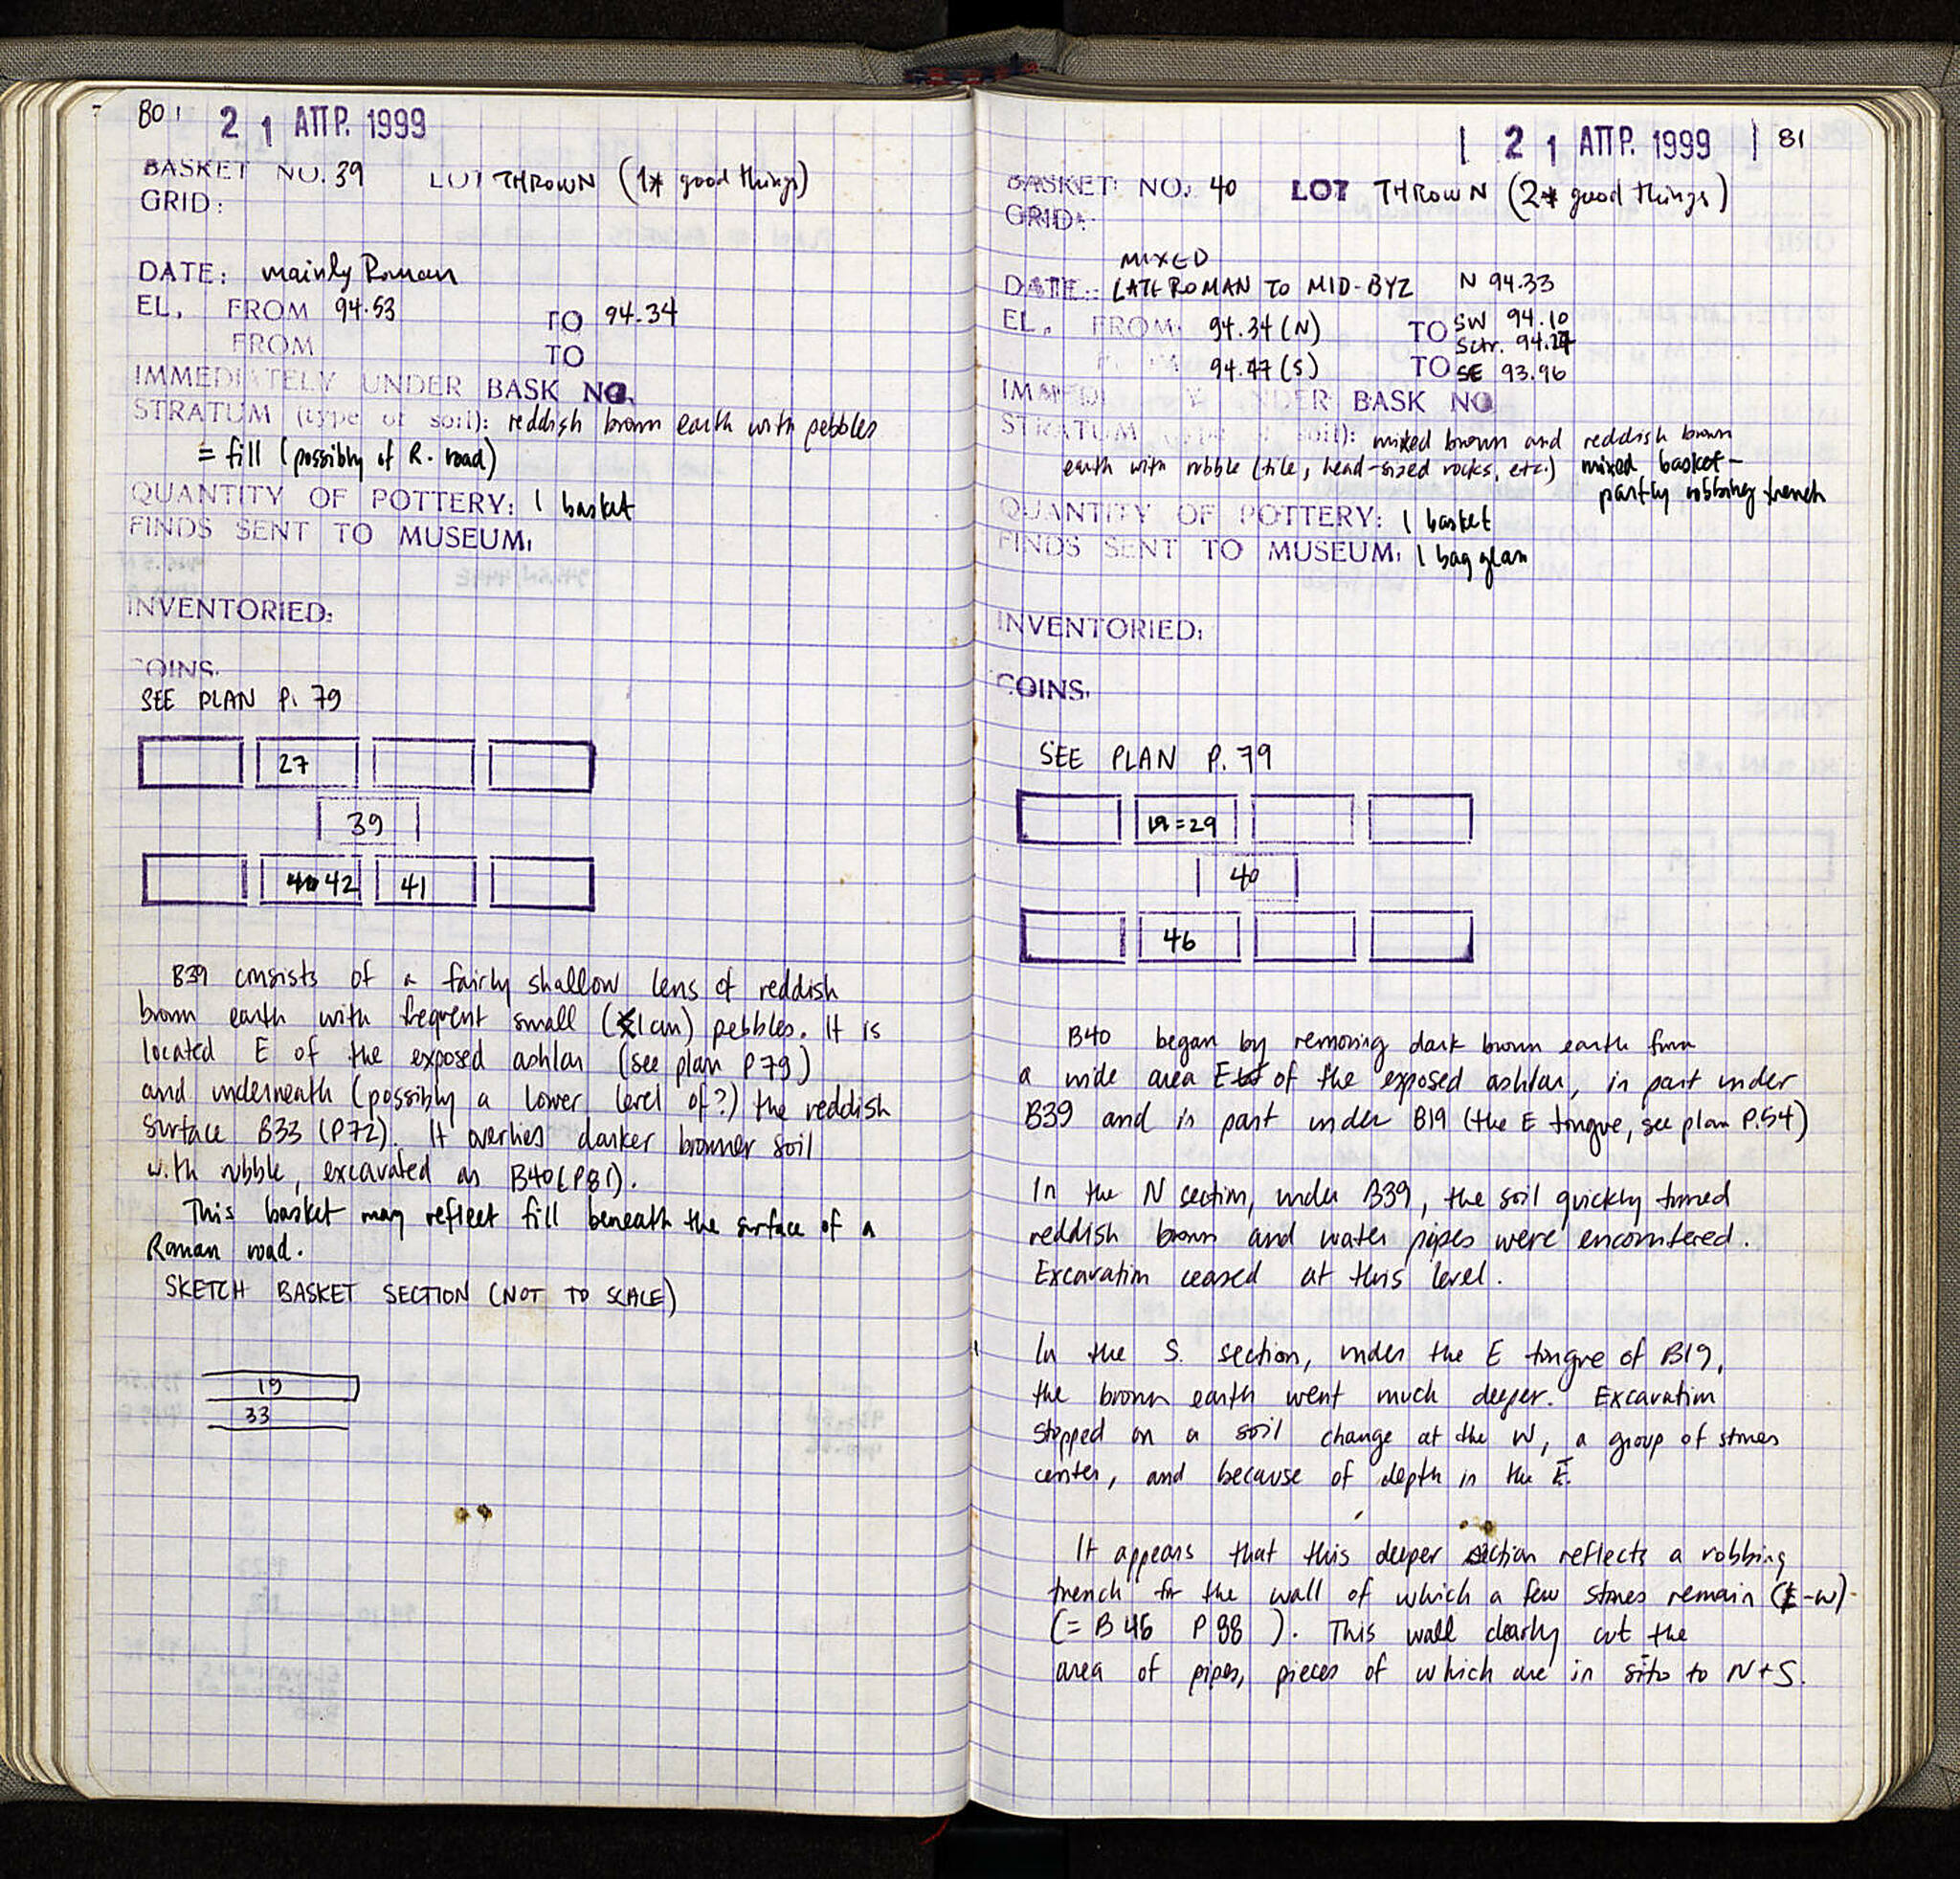 80
21 ΑΠΡ. 1999
BASKET NO. 39 LOT THROWN (1* good things)
GRID:
DATE: mainly Roman
EL. FROM 94.53 TO 94.34
FROM TO
IMMEDIATELY UNDER BASK NO.
STRATUM (type of soil): reddish brown earth with pebbles
= fill (possibly of R. road)
QUANTITY OF POTTERY: 1 basket
FINDS SENT TO MUSEUM:
INVENTORIED:
COINS.
SEE PLAN P. 79
27
39
42 41
B39 consists of a fairly shallow lens of reddish
brown earth with frequent small (<1cm) pebbles. It is
located E of the exposed ashlar (see plan P79)
and underneath (possibly a lower level of?) the reddish
surface B33 (P72). It overlies darker browner soil
with rubble, excavated as B40 (P81).
This basket may reflect fill beneath the surface of a
Roman road.
SKETCH BASKET SECTION (NOT TO SCALE)
19
33
21 ΑΠΡ. 1999 81
BASKET NO. 40 LOT THROWN (2* good things)
GRID:
MIXED
DATE: LATE ROMAN TO MID-BYZ N 94.33
EL. FROM 94.34 (N) TO SW 94.10
Sctr. 94.27
FROM 94.47 (S) TO SE 93.96
IMMEDIATELY UNDER BASK NO
STRATUM (type of soil): mixed brown and reddish brown
earth with rubble (tile, head-sized rocks, etc.) mixed basket-
partly robbing trench
QUANTITY OF POTTERY: 1 basket
FINDS SENT TO MUSEUM: 1 bag glass
INVENTORIED:
COINS.
SEE PLAN P. 79
19=29
40
46
B40 began by removing dark brown earth from
a wide area E of the exposed ashlar, in part under
B39 and in part under B19 (the E tongue, see plan P.54)
In the N section, under B39, the soil quickly turned
reddish brown and water pipes were encountered.
Excavation ceased at this level.
In the S. section, under the E tongue of B19,
the brown earth went much deeper. Excavation
stopped on a soil change at the W, a group of stones
center, and because of depth in the E.
It appears that this deeper section reflects a robbing
trench for the wall of which a few stones remain (E-W)
(= B46 P88 ). This wall clearly cut the
area of pipes, pieces of which are in situ to N+S.